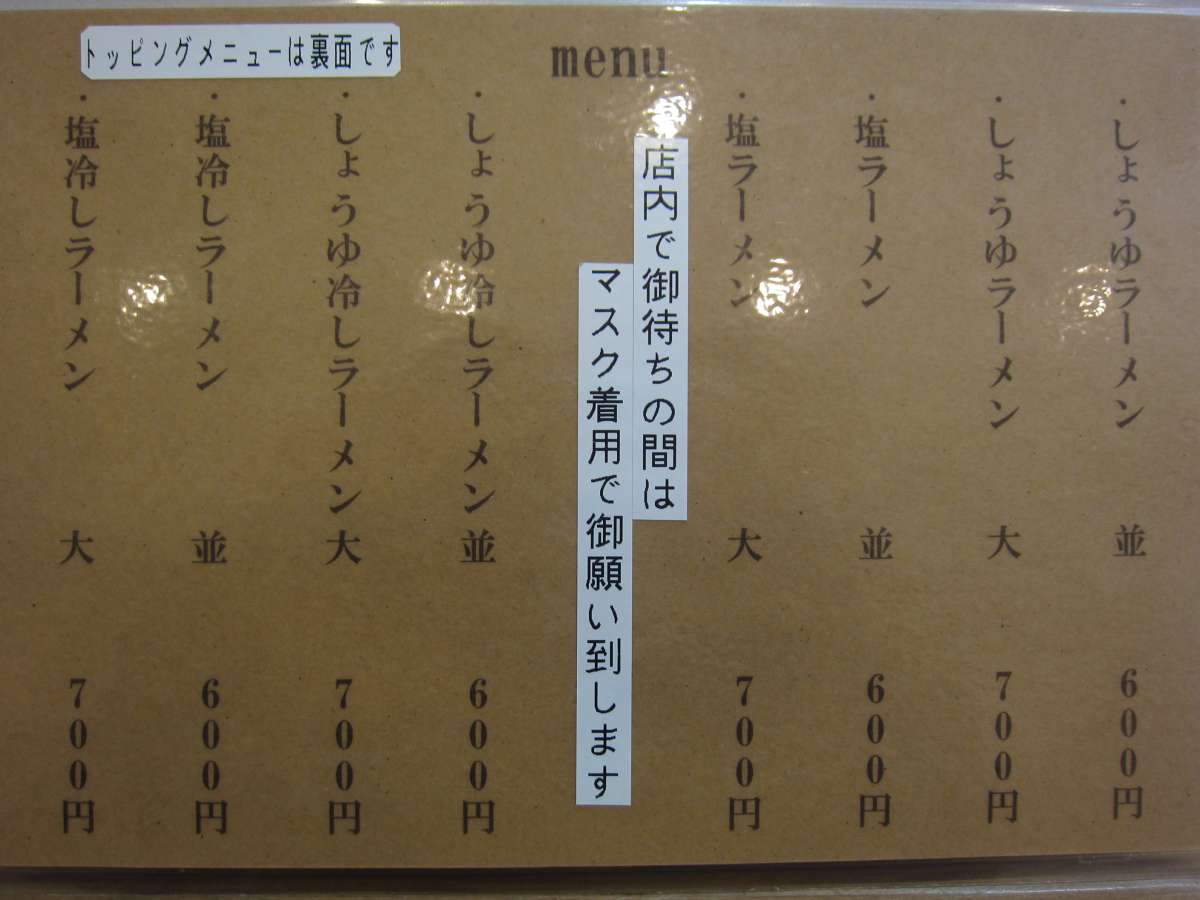 トッピングメニューは裏面です
menu
・しょうゆラーメン 並 600円
・しょうゆラーメン 大 700円
・塩ラーメン 並 600円
・塩ラーメン 大 700円
店内で御待ちの間は
マスク着用で御願い到します
・しょうゆ冷しラーメン 並 600円
・しょうゆ冷しラーメン 大 700円
・塩冷しラーメン 並 600円
・塩冷しラーメン 大 700円